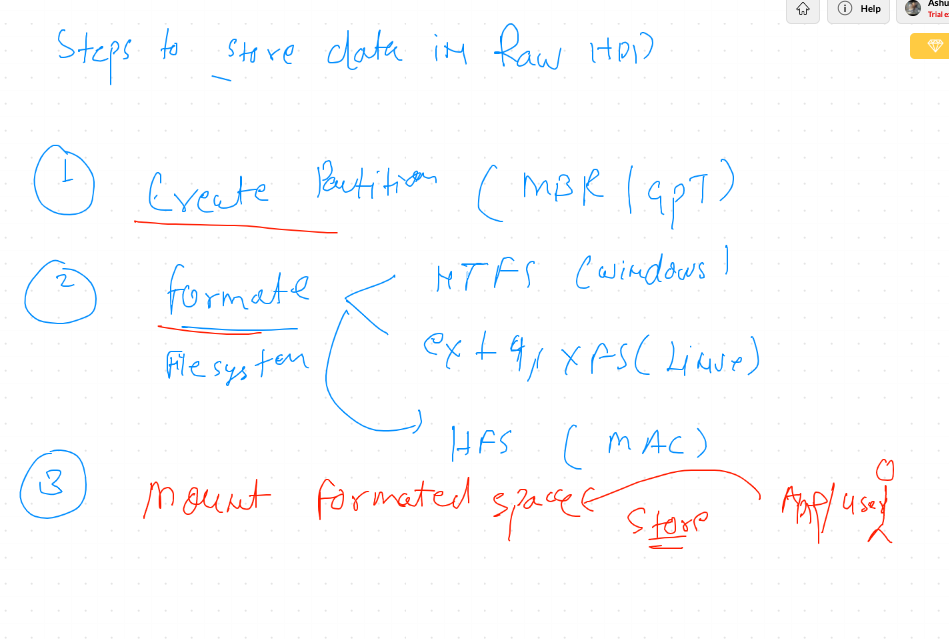 Help
Ashu
Trial e
Steps to store data in Raw HDD
1 Create Partition ( MBR / GPT )
2 formate NTFS ( windows )
File system ext4, XFS ( Linux )
HFS ( MAC )
3 Mount formated space
Store
App/user